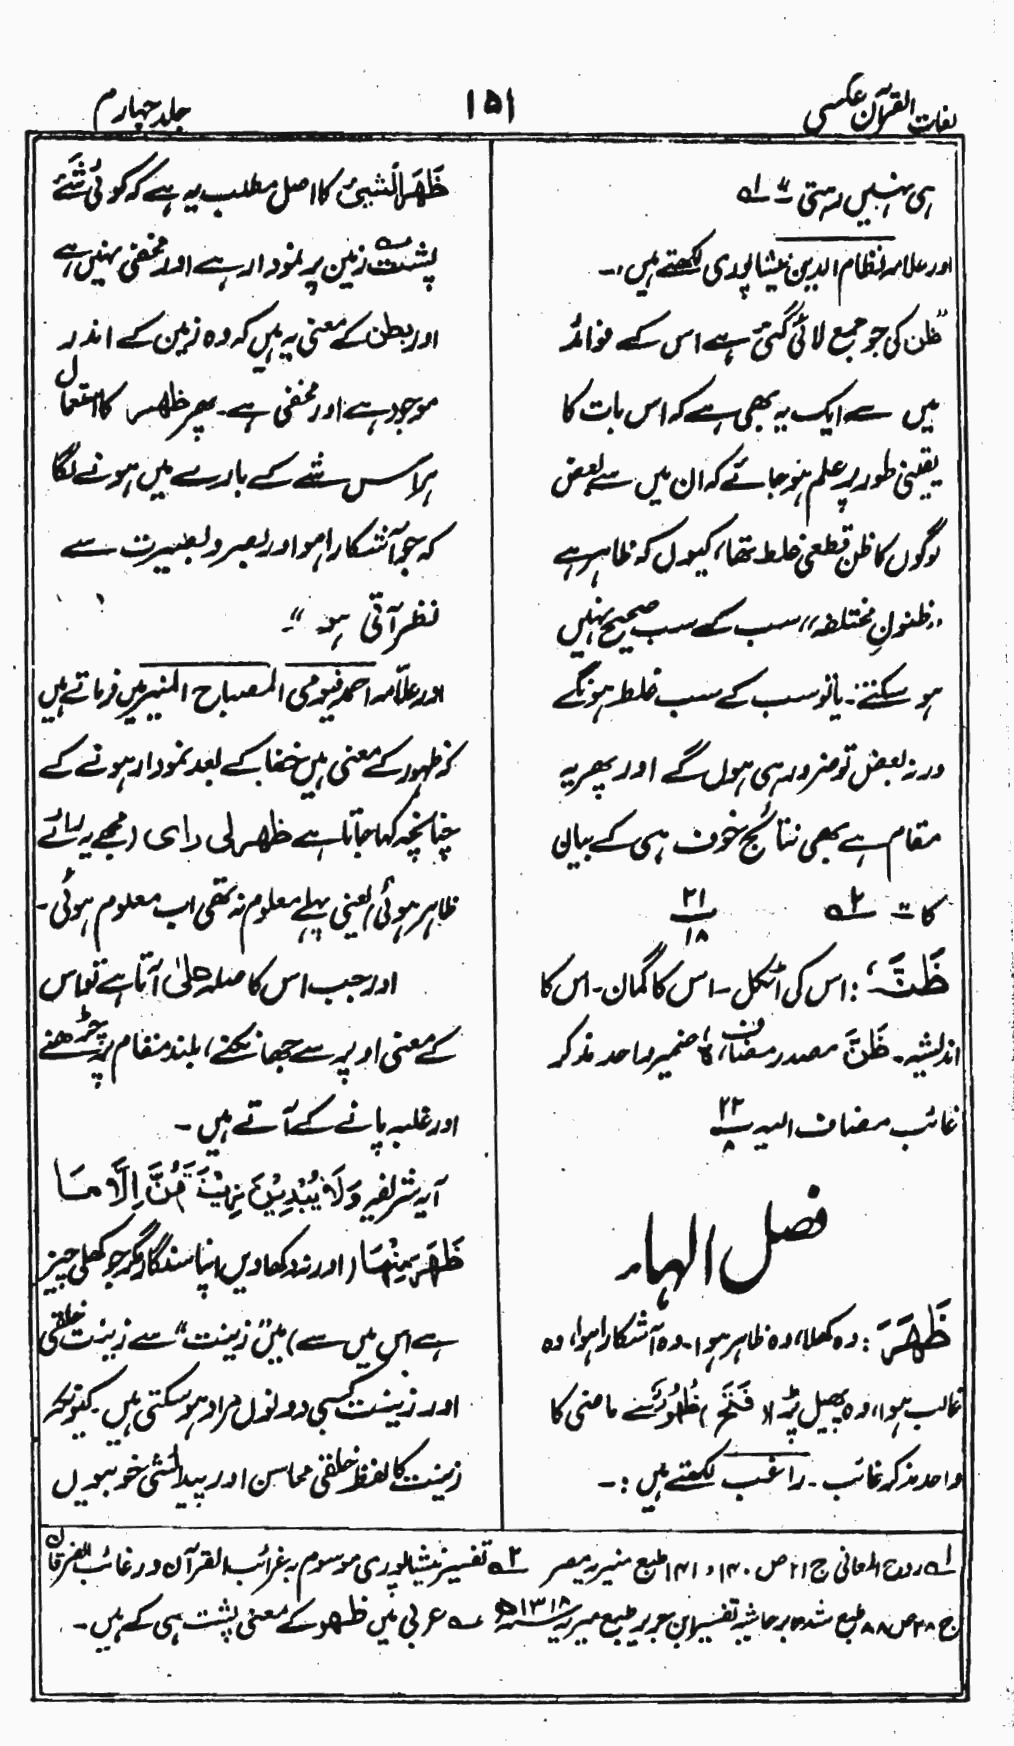 لغات القرآن عکسی
۱۵۱
جلد چہارم
ہی نہیں رہتی۔ ۱ہ
اور علامہ نظام الدین نیشاپوری لکھتے ہیں:۔
"ظن کی جو جمع لائی گئی ہے اس کے فوائد
میں سے ایک یہ بھی ہے کہ اس بات کا
یقینی طور پر علم ہو جائے کہ ان میں سے بعض
لوگوں کا ظن قطعی غلط تھا، کیوں کہ ظاہر ہے
"ظنونِ مختلفہ" سب کے سب صحیح نہیں
ہو سکتے۔ یا تو سب کے سب غلط ہونگے
ورنہ بعض تو ضرور ہی ہوں گے اور پھر یہ
مقام ہے بھی نتائج خوف ہی کے بیان
کا۔ ۲ہ ۲۱/۱۸
ظَنَّہٗ: اس کی اٹکل۔ اس کا گمان۔ اس کا
اندیشہ۔ ظَنَّ مصدر مضاف، ہٗ ضمیر واحد مذکر
غائب مضاف الیہ ۲۲/۸
فصل الہاء
ظَهَرَ: وہ کھلا، وہ ظاہر ہوا۔ وہ آشکارا ہوا، وہ
غالب ہوا، وہ پھیل پڑا (فَتَحَ) ظُهُوْرٌ سے ماضی کا
واحد مذکر غائب۔ راغب لکھتے ہیں:۔
ظَهَرَ الشیئُ کا اصل مطلب یہ ہے کہ کوئی شَے
پشت زمین پر نمودار ہے اور مخفی نہیں ہے
اور بطن کے معنی یہ ہیں کہ وہ زمین کے اندر
موجود ہے اور مخفی ہے۔ پھر ظہر کا استعمال
ہر اس شے کے بارے میں ہونے لگا
کہ جو آشکارا ہو اور بصر و بصیرت سے
نظر آتی ہو۔"
اور علّامہ احمد فیومی المصباح المنیر میں فرماتے ہیں
کہ ظہور کے معنی ہیں خفا کے بعد نمودار ہونے کے
چنانچہ کہا جاتا ہے ظہر لی رای (مجھے یہ رائے
ظاہر ہوئی) یعنی پہلے معلوم نہ تھی اب معلوم ہوئی۔
اور جب اس کا صلہ علیٰ آتا ہے تو اس
کے معنی اوپر سے جھانکنے، بلند مقام پر چڑھنے
اور غلبہ پانے کے آتے ہیں۔
آیہ شریفہ وَلَا يُبْدِيْنَ زِيْنَتَهُنَّ اِلَّا مَا
ظَهَرَ مِنْهَا (اور نہ دکھاویں اپنا سنگار مگر جو کھلی چیز
ہے اس میں سے) میں "زینت" سے زینت خلقی
اور زینت کسبی دونوں مراد ہو سکتی ہیں۔ کیونکہ
زینت کا لفظ خلقی محاسن اور پیدائشی خوبیوں
۱ہ روح المعانی ج ۲۱ ص ۱۴۰ و ۱۴۱ طبع منیریہ مصر ۲ہ تفسیر نیشاپوری موسوم بہ غرائب القرآن ورغائب الفرقان
ج ۲۸ ص ۸۸ طبع شدہ بر حاشیہ تفسیر ابن جریر طبع میریہ ۱۳۱۸ھ ۳ہ عربی میں ظہر کے معنی پشت ہی کے ہیں۔